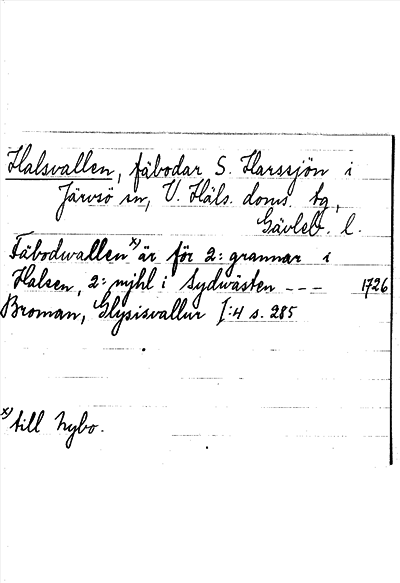 Halsvallen, fäbodar S. Harssjön i
Järvsö sn, V. Häls. doms. tg,
Gävleb. l.
Fäbodwallen x) är för 2: grannar i
Halsen, 2: mjhl i Sydwästen --- 1726
Broman, Glysisvallur I:4 s. 285
x) till Nybo.